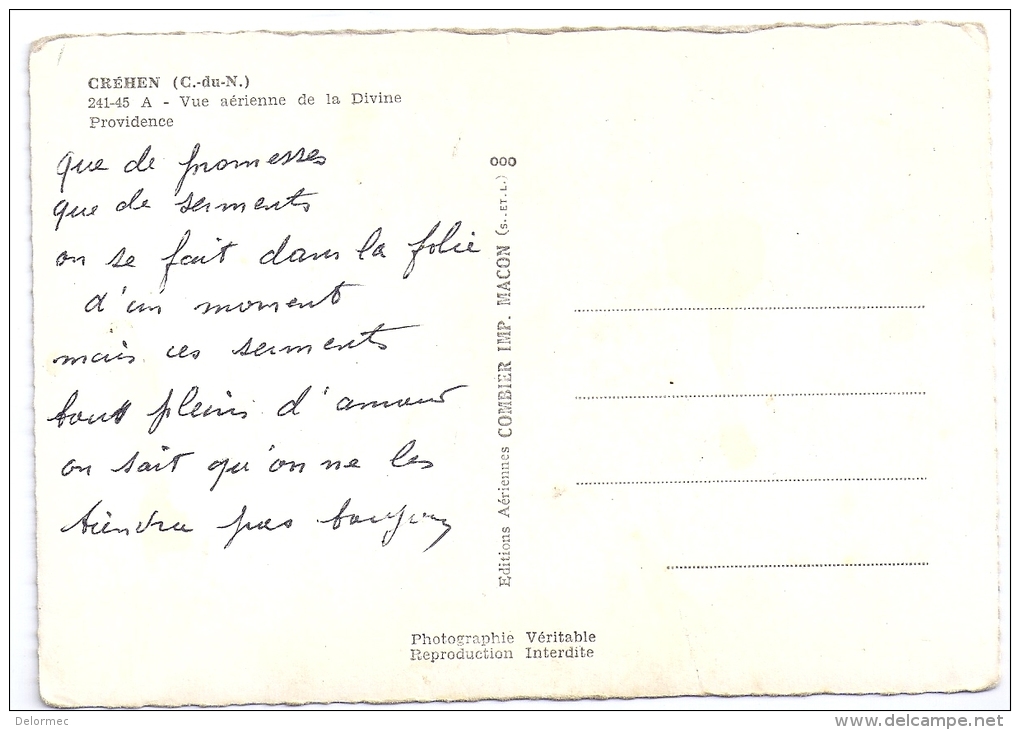 CRÉHEN (C.-du-N.)
241-45 A - Vue aérienne de la Divine
Providence
que de promesses
que de serments
on se fait dans la folie
d'un moment
mais ces serments
tout pleins d'amour
on sait qu'on ne les
tiendra pas toujours
Editions Aériennes COMBIER IMP. MACON (S.-ET-L.) 000
Photographie Véritable
Reproduction Interdite
Delormec
www.delcampe.net